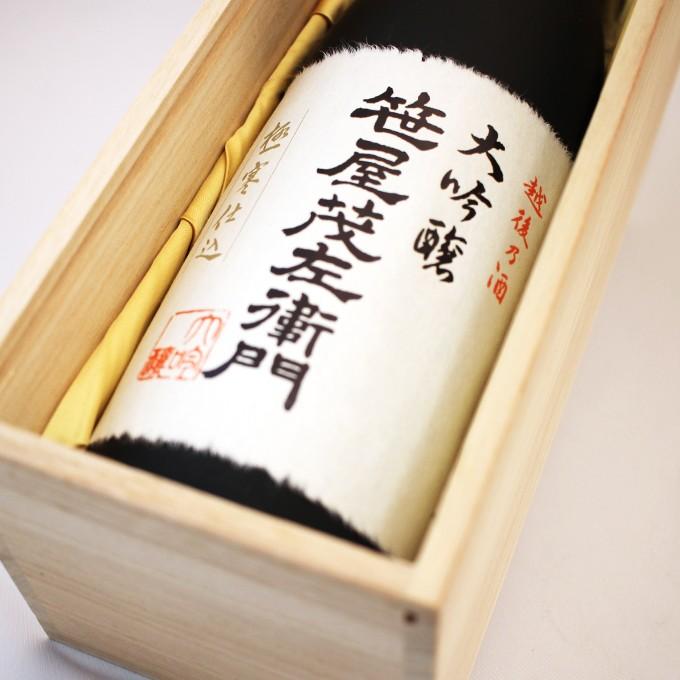 越後乃酒
大吟醸
笹屋茂左衛門
極寒仕込
大吟醸